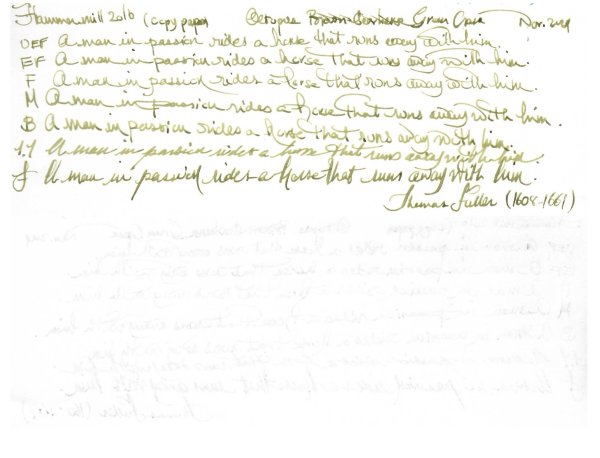 Hammermill 20lb (copy paper)
OEF A man in passion rides a horse that runs away with him.
EF A man in passion rides a horse that runs away with him.
F A man in passion rides a horse that runs away with him.
M A man in passion rides a horse that runs away with him.
B A man in passion rides a horse that runs away with him.
1.1 A man in passion rides a horse that runs away with him.
J A man in passion rides a horse that runs away with him.
Thomas Fuller (1608-1661)